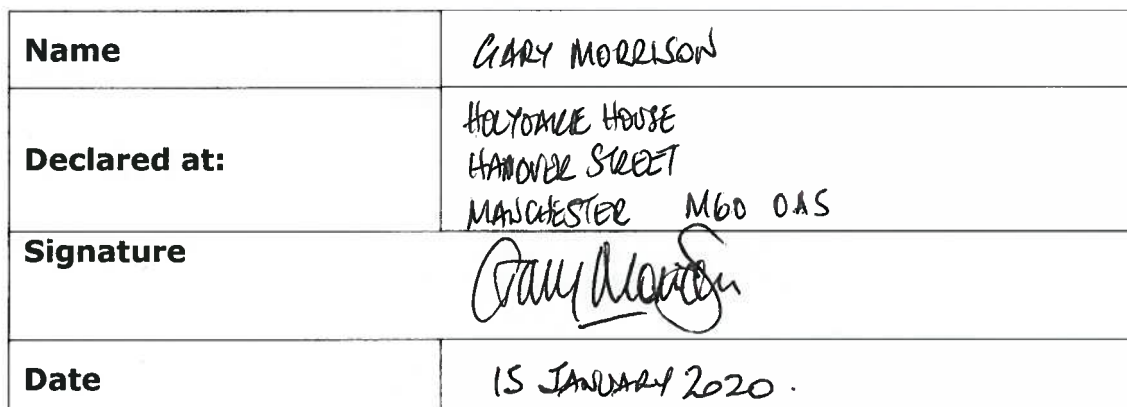 Name GARY MORRISON
HOLYOAKE HOUSE
Declared at: HANOVER STREET
MANCHESTER M60 0AS
Signature Gary Morrison
Date 15 JANUARY 2020.